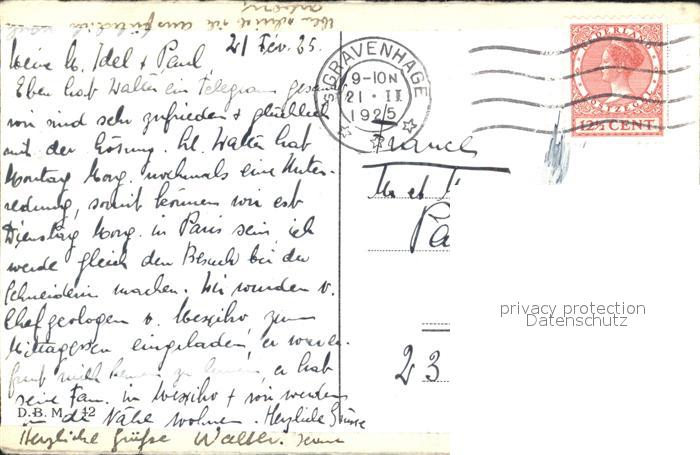 21 Fév. 25.
Meine l. Idel + Paul
Eben hat Walter ein Telegram gesandt
wir sind sehr zufrieden + glücklich
mit der Lösung. Hl. Walter hat
Montag Morg. nochmals eine Unter-
redung, somit können wir erst
Dienstag Morg. in Paris sein, ich
werde gleich den Besuch bei der
Schneiderin machen. Wir wurden v.
Chefgeologen v. Mexiko zum
Mittagessen eingeladen, er war
er hat
seine Fam. in Mexiko + wir werden
in die Nähe wohnen. Herzliche Grüsse
Herzliche Grüße Walter.
D.B.M. 42
'S GRAVENHAGE
9-10N
21 · II
1925
NEDERLAND
POSTZEGEL
12½ CENT
France
Mr et
Pa
23
privacy protection
Datenschutz